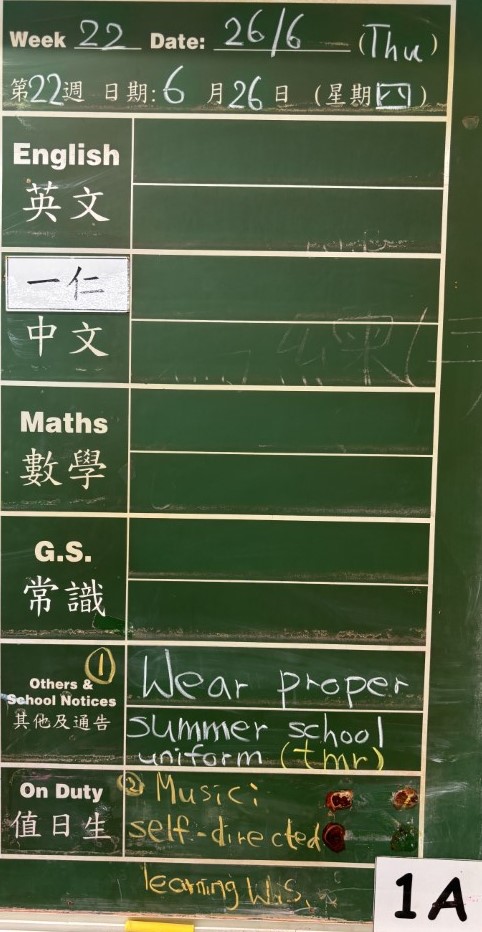 Week 22 Date: 26/6 (Thu)
第22週 日期:6 月26日 (星期四)
English
英文
一仁
中文
Maths
數學
G.S.
常識
① Wear proper
Others &
School Notices
其他及通告
summer school
uniform (tmr)
On Duty
值日生
② Music:
self-directed
learning W.S.
1A